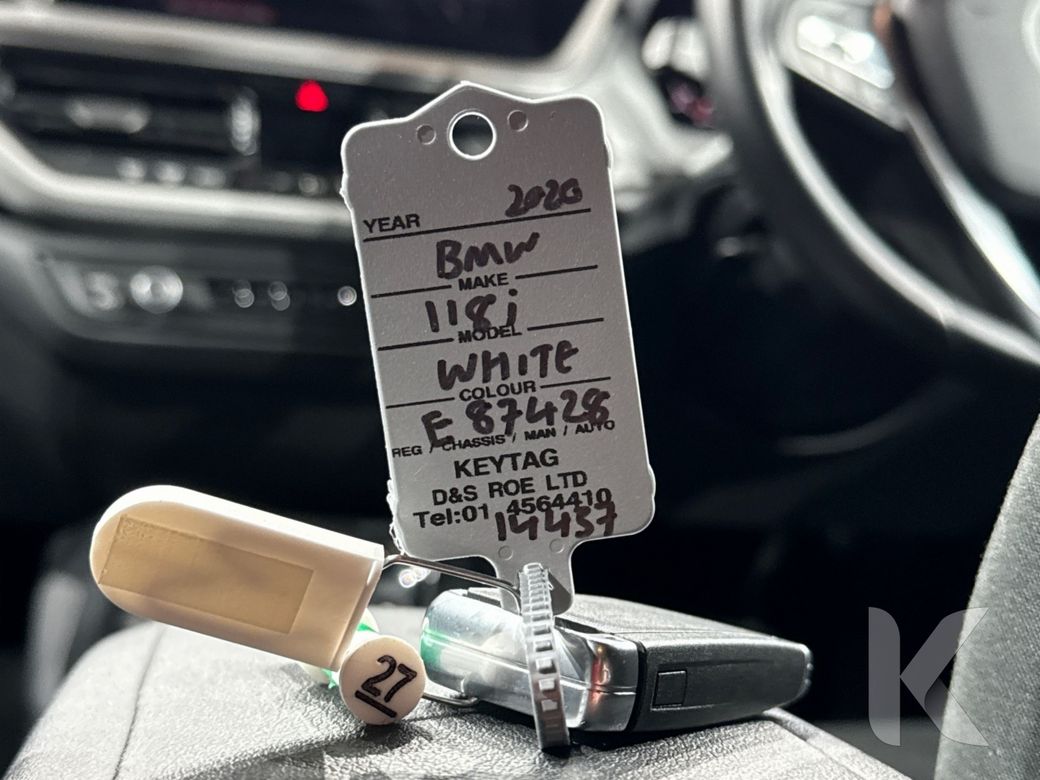 YEAR 2020
BMW
MAKE
118i
MODEL
WHITE
COLOUR
E 87428
REG / CHASSIS / MAN / AUTO
KEYTAG
D&S ROE LTD
Tel:01 4564410
14457
27
K